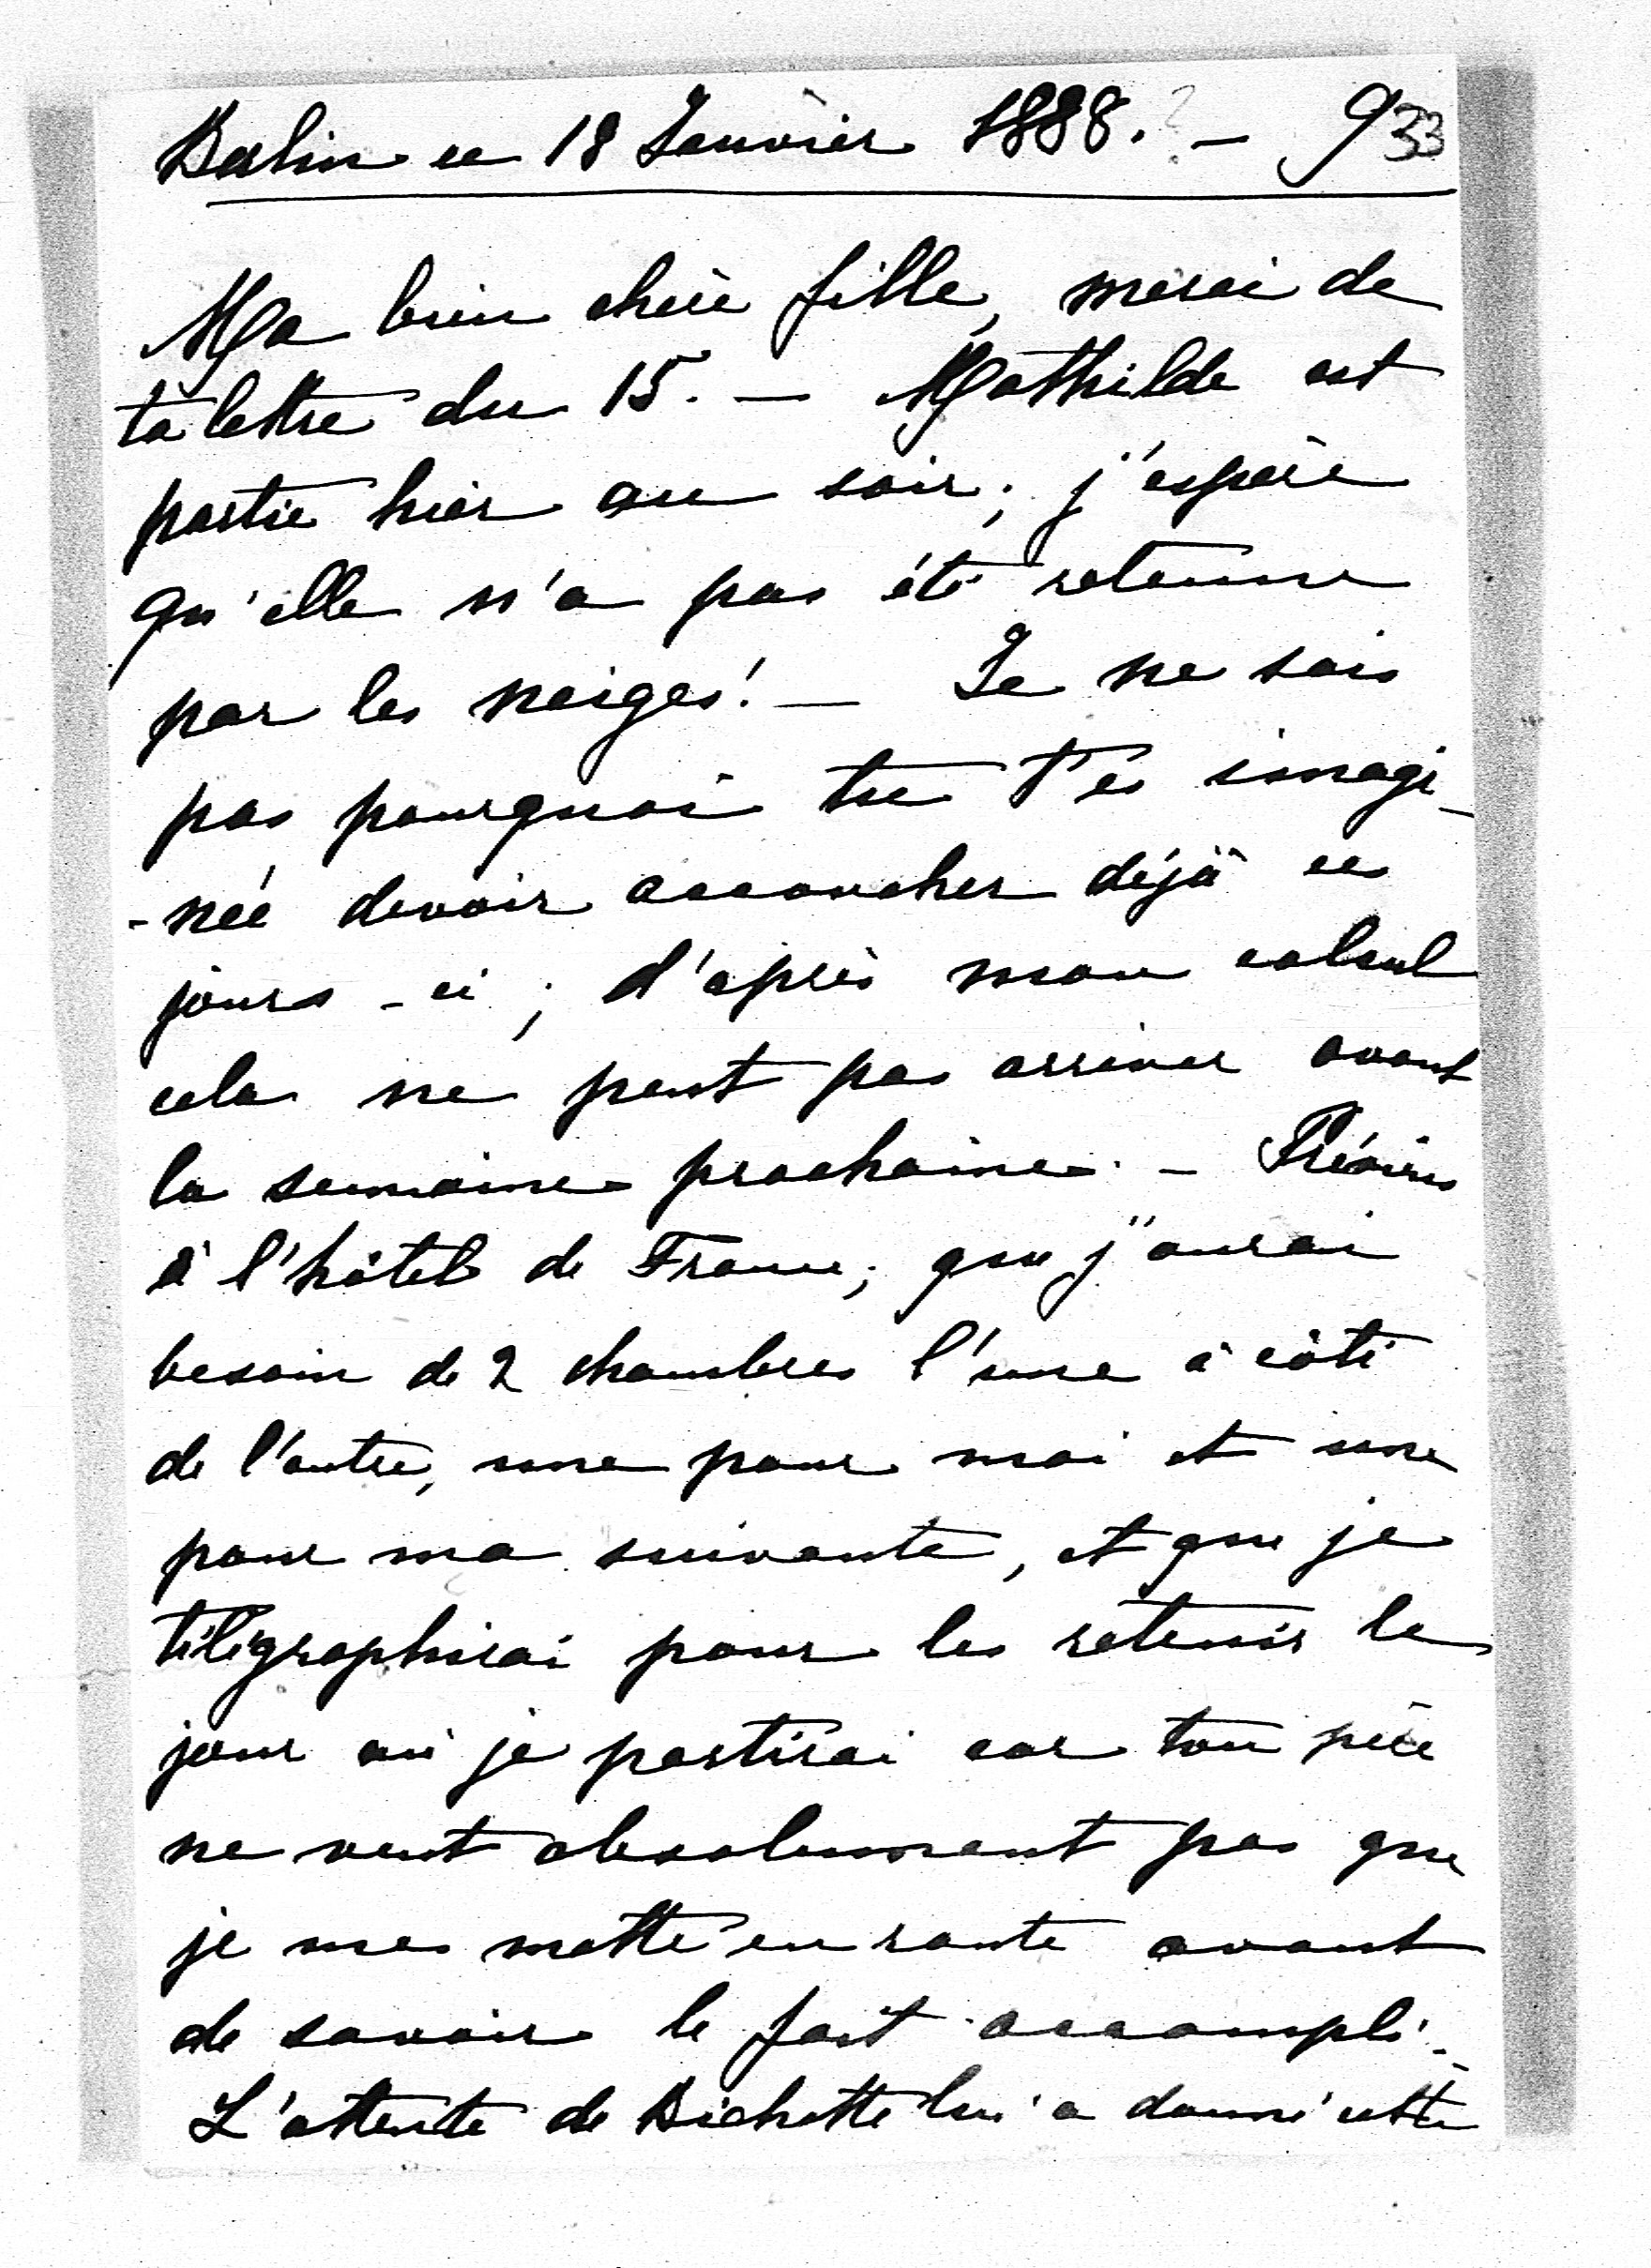 Berlin ce 18 Janvier 1888. ? — 933
Ma bien chère fille, merci de
ta lettre du 15. — Mathilde est
partie hier au soir; j'espère
qu'elle n'a pas été retenue
par les neiges! — Je ne sais
pas pourquoi tu t'es imagi-
-née devoir accoucher déjà ces
jours-ci; d'après mon calcul
cela ne peut pas arriver avant
la semaine prochaine. — Préviens
à l'hôtel de France, que j'aurai
besoin de 2 chambres l'une à côté
de l'autre, une pour moi et une
pour ma suivante, et que je
télégraphirai pour les retenir le
jour où je partirai car ton père
ne veut absolument pas que
je me mette en route avant
de savoir le fait accompli. —
L'attente de Bichette lui a donné cette